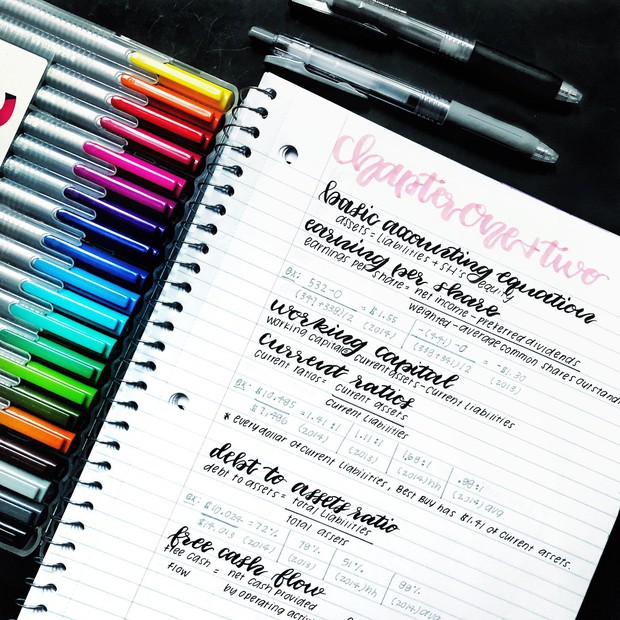 chapter one + two
basic accounting equation
assets = liabilities + SH's equity
earning per share
earnings per share = net income - preferred dividends
weighted - average common shares outstand
ex: 532-0 = $1.55 -(441)-0 = -$1.30
(2014) (2013)
working capital
working capital = current assets - current liabilities
current ratios
current ratios = current assets
current liabilities
ex: $10,485 = 1.41:1 1.11:1 1.68:1 .98:1
$7,436 (2014) (2013) (2014) hh (2014) avg
* every dollar of current liabilities, Best Buy has $1.41 of current assets.
debt to assets ratio
debt to assets = total liabilities
total assets
ex: $10,024 = 72% 78% 51% 88%
$14,013 (2014) (2013) (2014) hh (2014) avg
free cash flow
free cash = net cash provided
flow by operating activi